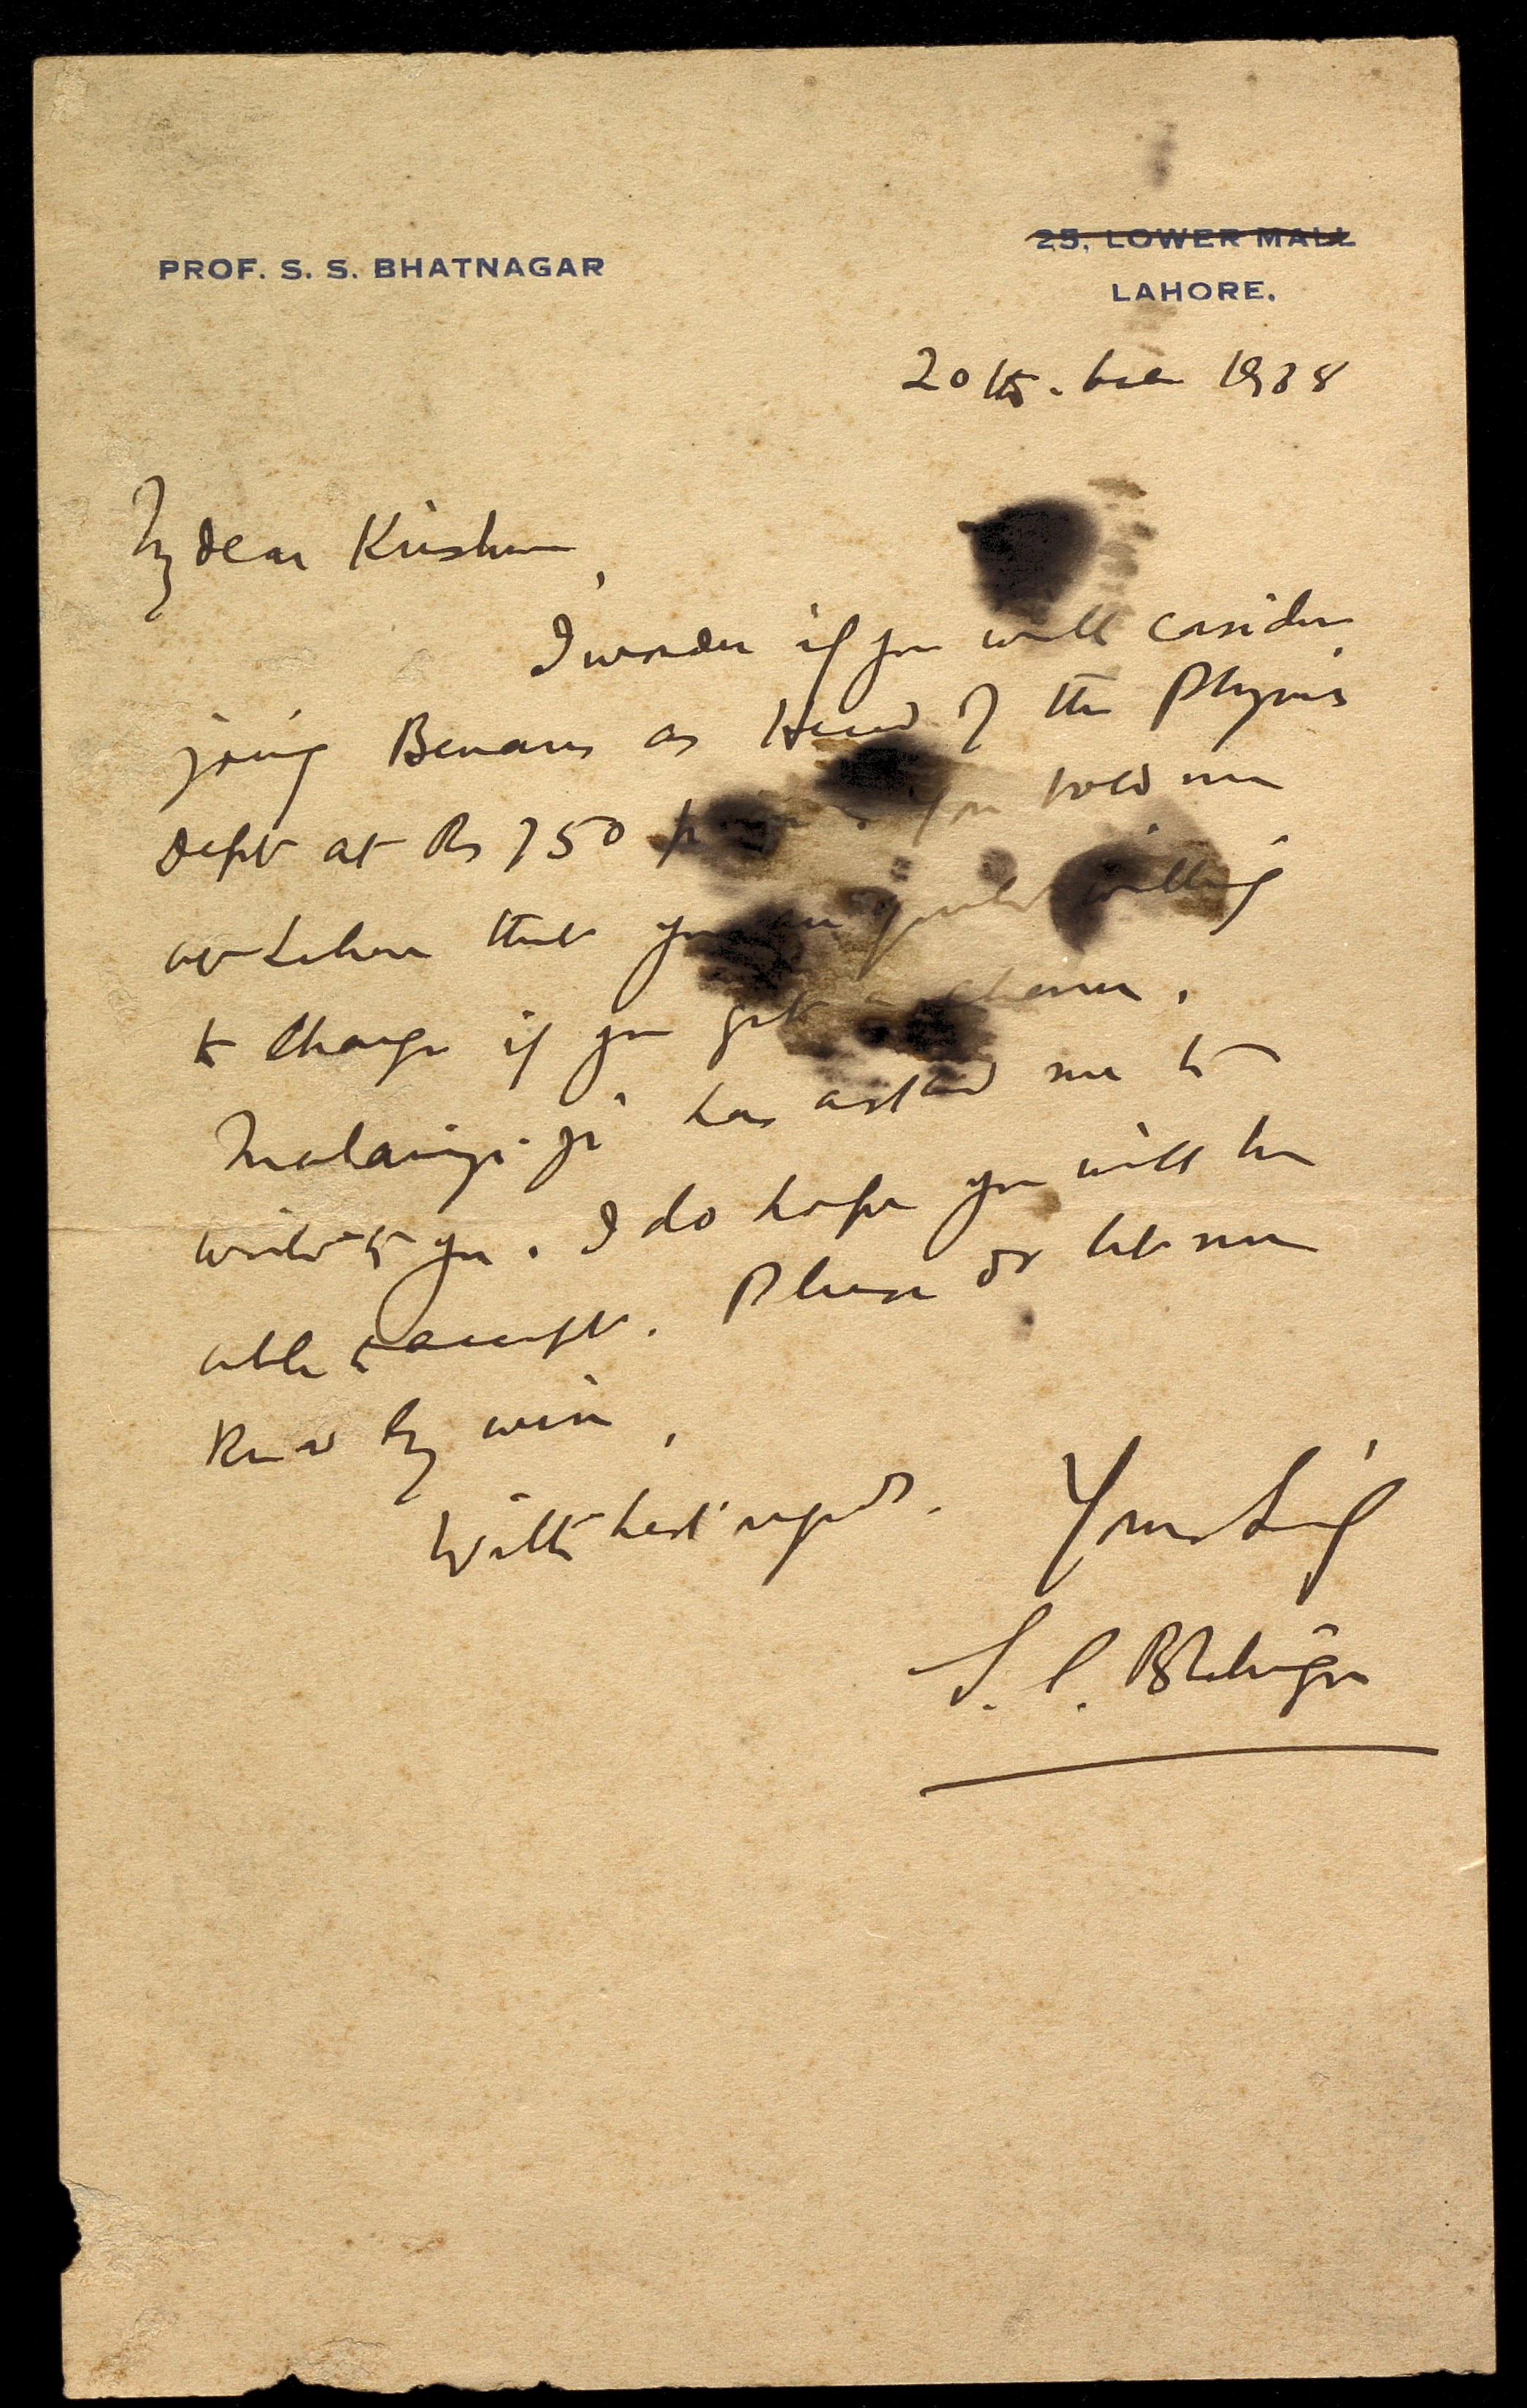 PROF. S. S. BHATNAGAR
25, LOWER MALL
LAHORE.
20th. 1938
My dear Krishnan,
I wonder if you will consider
joing Benares as Head of the Physics
Dept at Rs 750 You told me
at Lahore that you are quite willing
to change if you get a chance.
Malaviya-ji has asked me to
write to you. I do hope you will be
able to accept. Please do let me
know by wire,
With best regards. Yours Sincly
S. S. Bhatnagar